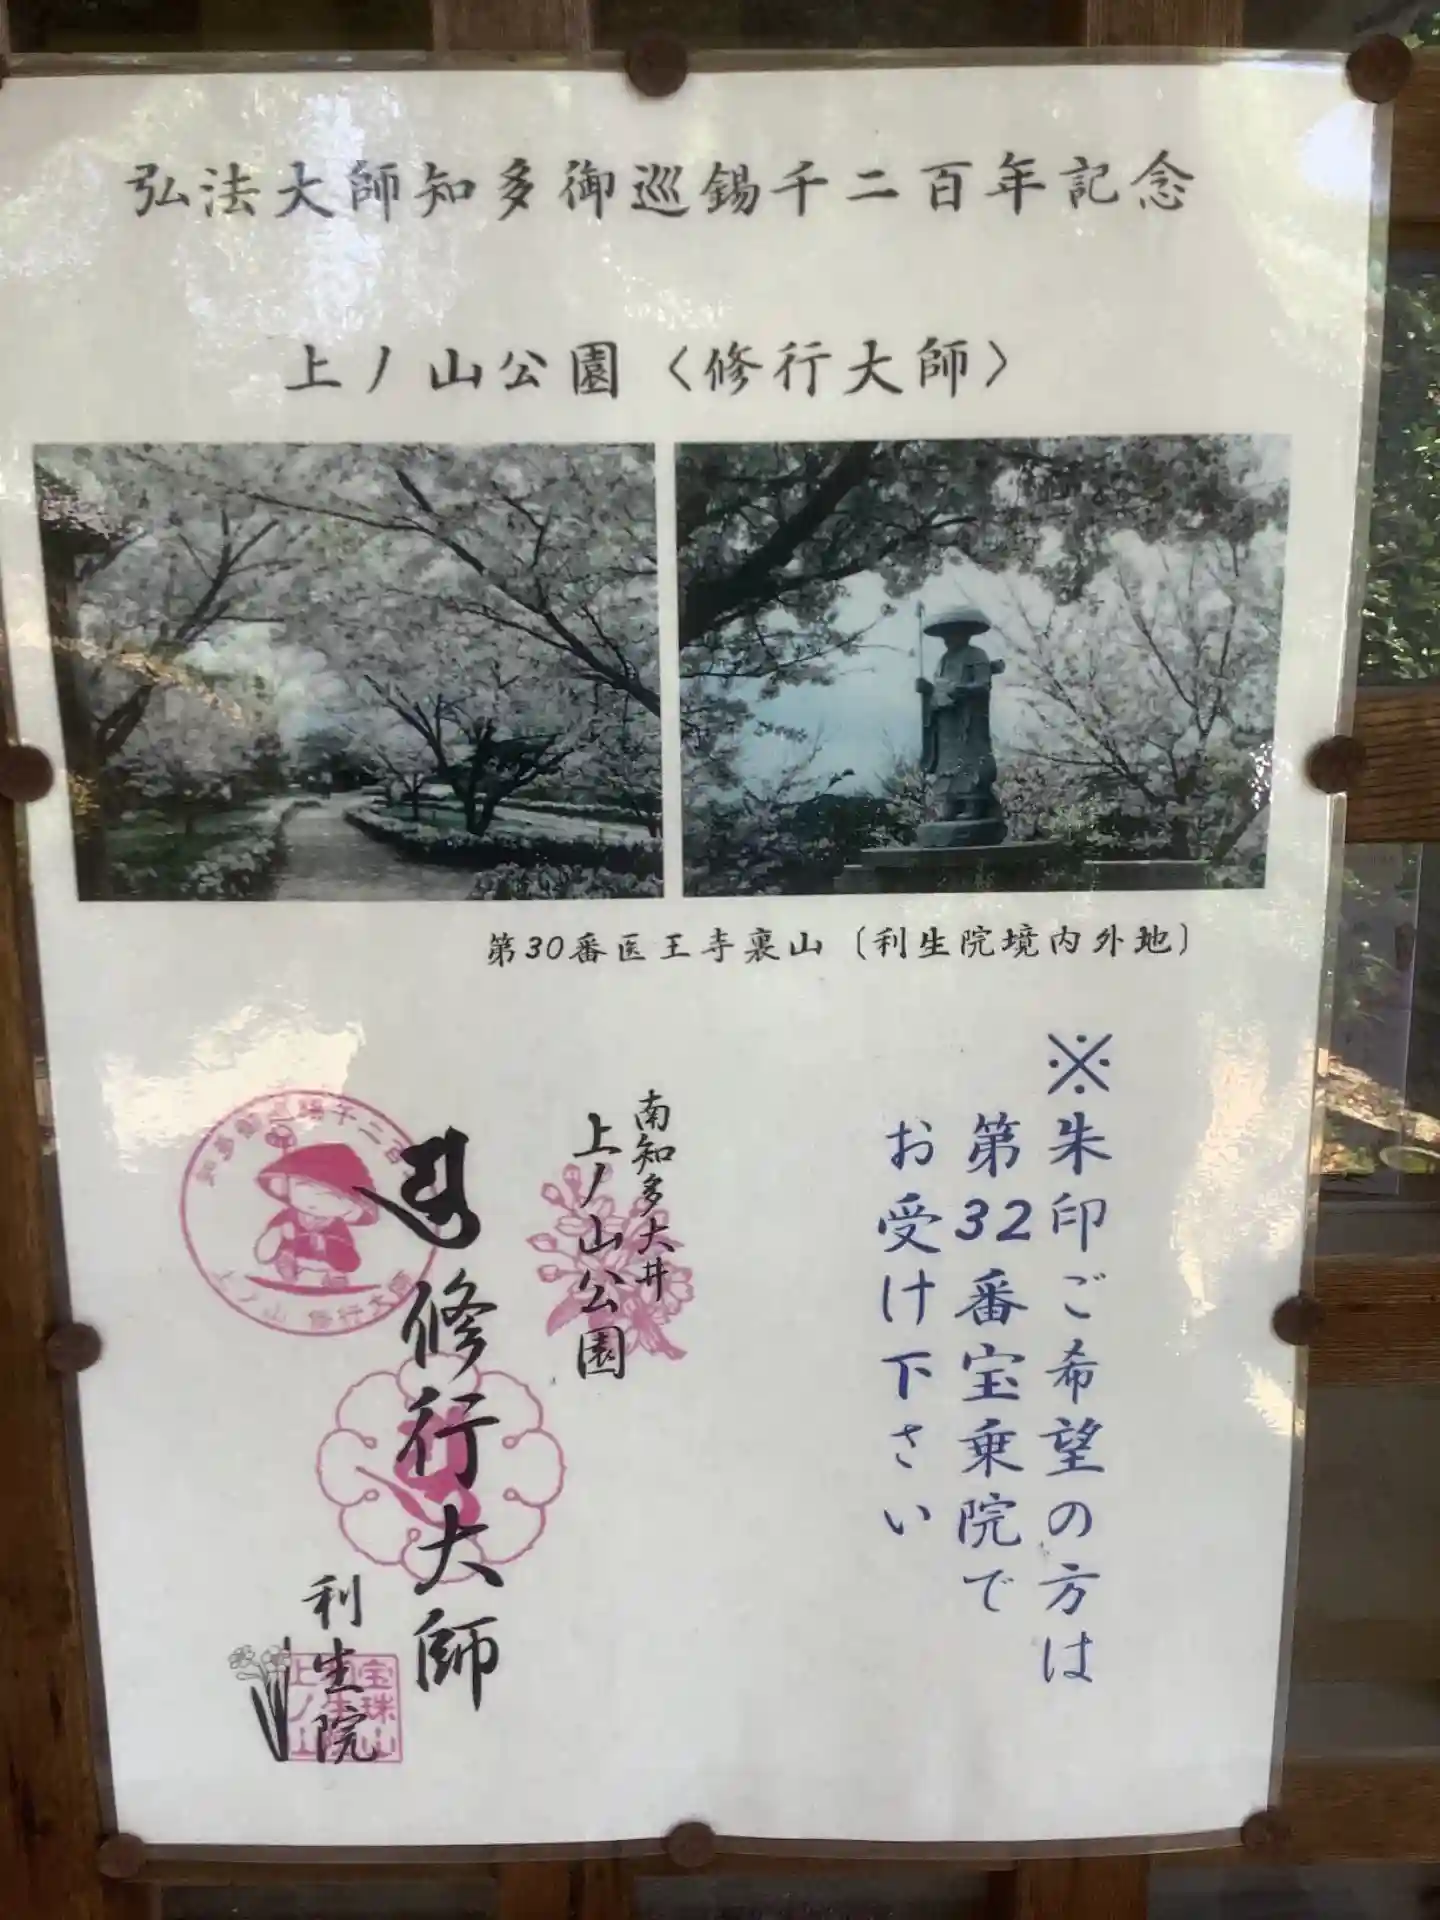 弘法大師知多御巡錫千二百年記念
上ノ山公園〈修行大師〉
第30番医王寺裏山〔利生院境内外地〕
※朱印ご希望の方は
第32番宝乗院で
お受け下さい
南知多大井
上ノ山公園
修行大師
利生院
上ノ山 修行大師
宝珠山
上ノ山